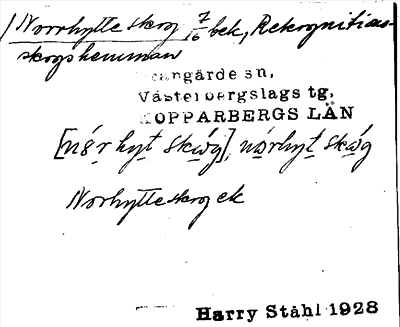 1 Norrhytte skog 7/16 bek, Rekognitions-
skogshemman
Grangärde sn,
Västerbergslags tg,
KOPPARBERGS LÄN
[nó̤r hyt skó̤g], nó̤rhyt skó̤g
Norhytteskog ek
Harry Ståhl 1928